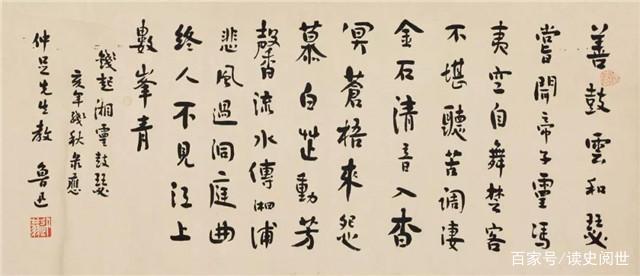 善鼓雲和瑟
嘗聞帝子靈馮
夷空自舞楚客
不堪聽苦調淒
金石清音入杳
冥蒼梧來怨
慕白芷動芳
馨流水傳湘浦
悲風過洞庭曲
終人不見江上
數峯青
錢起湘靈鼓瑟
亥年殘秋录應
仲足先生教 魯迅
百家号/读史阅世